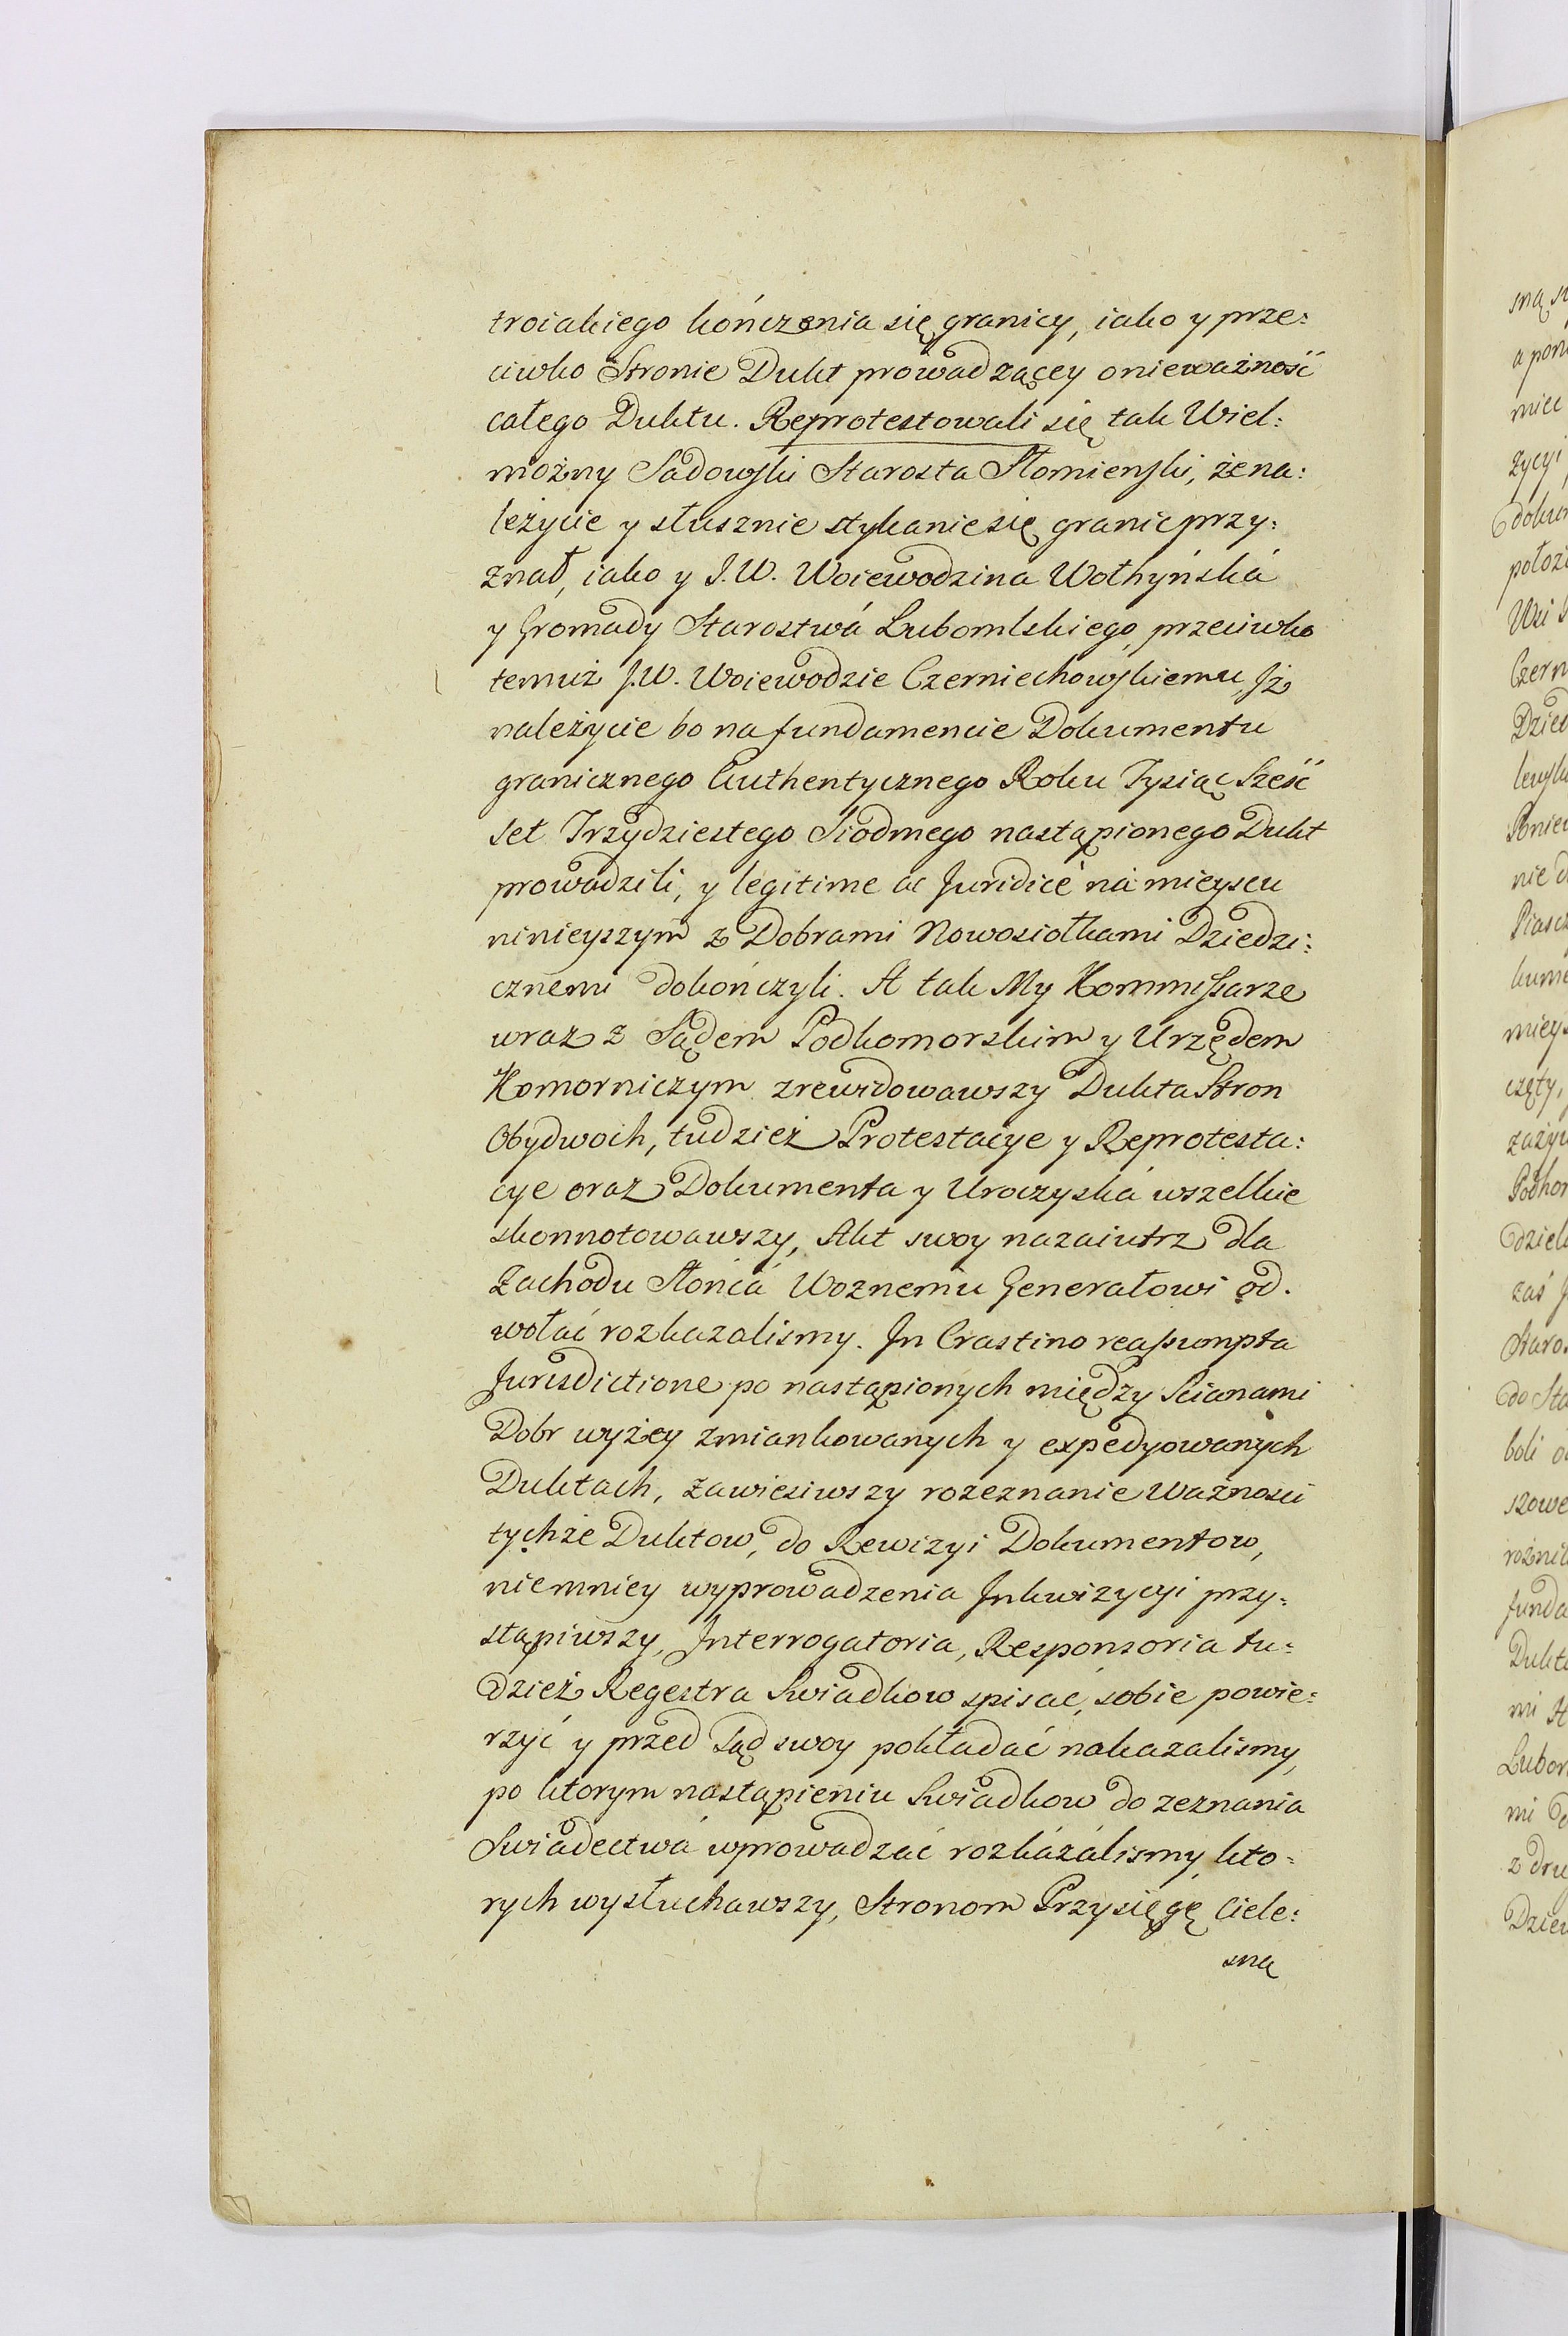 troiakiego kończenia się granicy, iako y prze:
ciwko Stronie Dukt prowadzącey o nieważność
całego Duktu. Reprotestowali się tak Wiel:
możny Sadowski Starosta Słomienski, że na:
leżycie y słusznie stykanie się granic przy:
znał, iako y J.W. Woiewodzina Wołhyńská
y Gromady Starostwá Lubomlskiego, przeciwko
temuż J.W. Woiewodzie Czerniechowskiemu, Jż
należycie bo na fundamencie Dokumentu
granicznego Authentycznego Roku Tysiąc Sześć
set Trzydziestego Siodmego nastąpionego Dukt
prowadzili, y legitime ac Juridicè ná mieyscu
ninieyszym z Dobrami Nowosiołkami Dziedzi:
cznemi dokończyli. A tak My Kommissarze
wraz z Sądem Podkomorskim y Urzędem
Komorniczym zrewidowawszy Dukta Stron
Obydwoch, tudzież Protestacye y Reprotesta:
cye oraz Dokumenta y Uroczyská wszelkie
skonnotowawszy, Akt swoy nazaiutrz dla
Zachodu Słońcá Woznemu Generałowi od.
wołać rozkazalismy. Jn Crastino reassumpta
Jurisdictione po nastąpionych między Scianami
Dobr wyżey zmiankowanych y expedyowanych
Duktach, zawiesiwszy rozeznanie Ważnosci
tychże Duktow, do Rewizyi Dokumentow,
niemniey wyprowadzenia Jnkwizycyi przy:
stąpiwszy, Jnterrogatoria, Responsoria tu:
dzież Regestra Swiadkow spisać, sobie powie:
rzyć y przed Sąd swoy pokładać nakazalismy,
po ktorym nastąpieniu Swiadkow do zeznania
Swiadectwá wprowadzać rozkázálismy, kto:
rych wysłuchawszy, Stronom Przysięgę Ciele:
sną